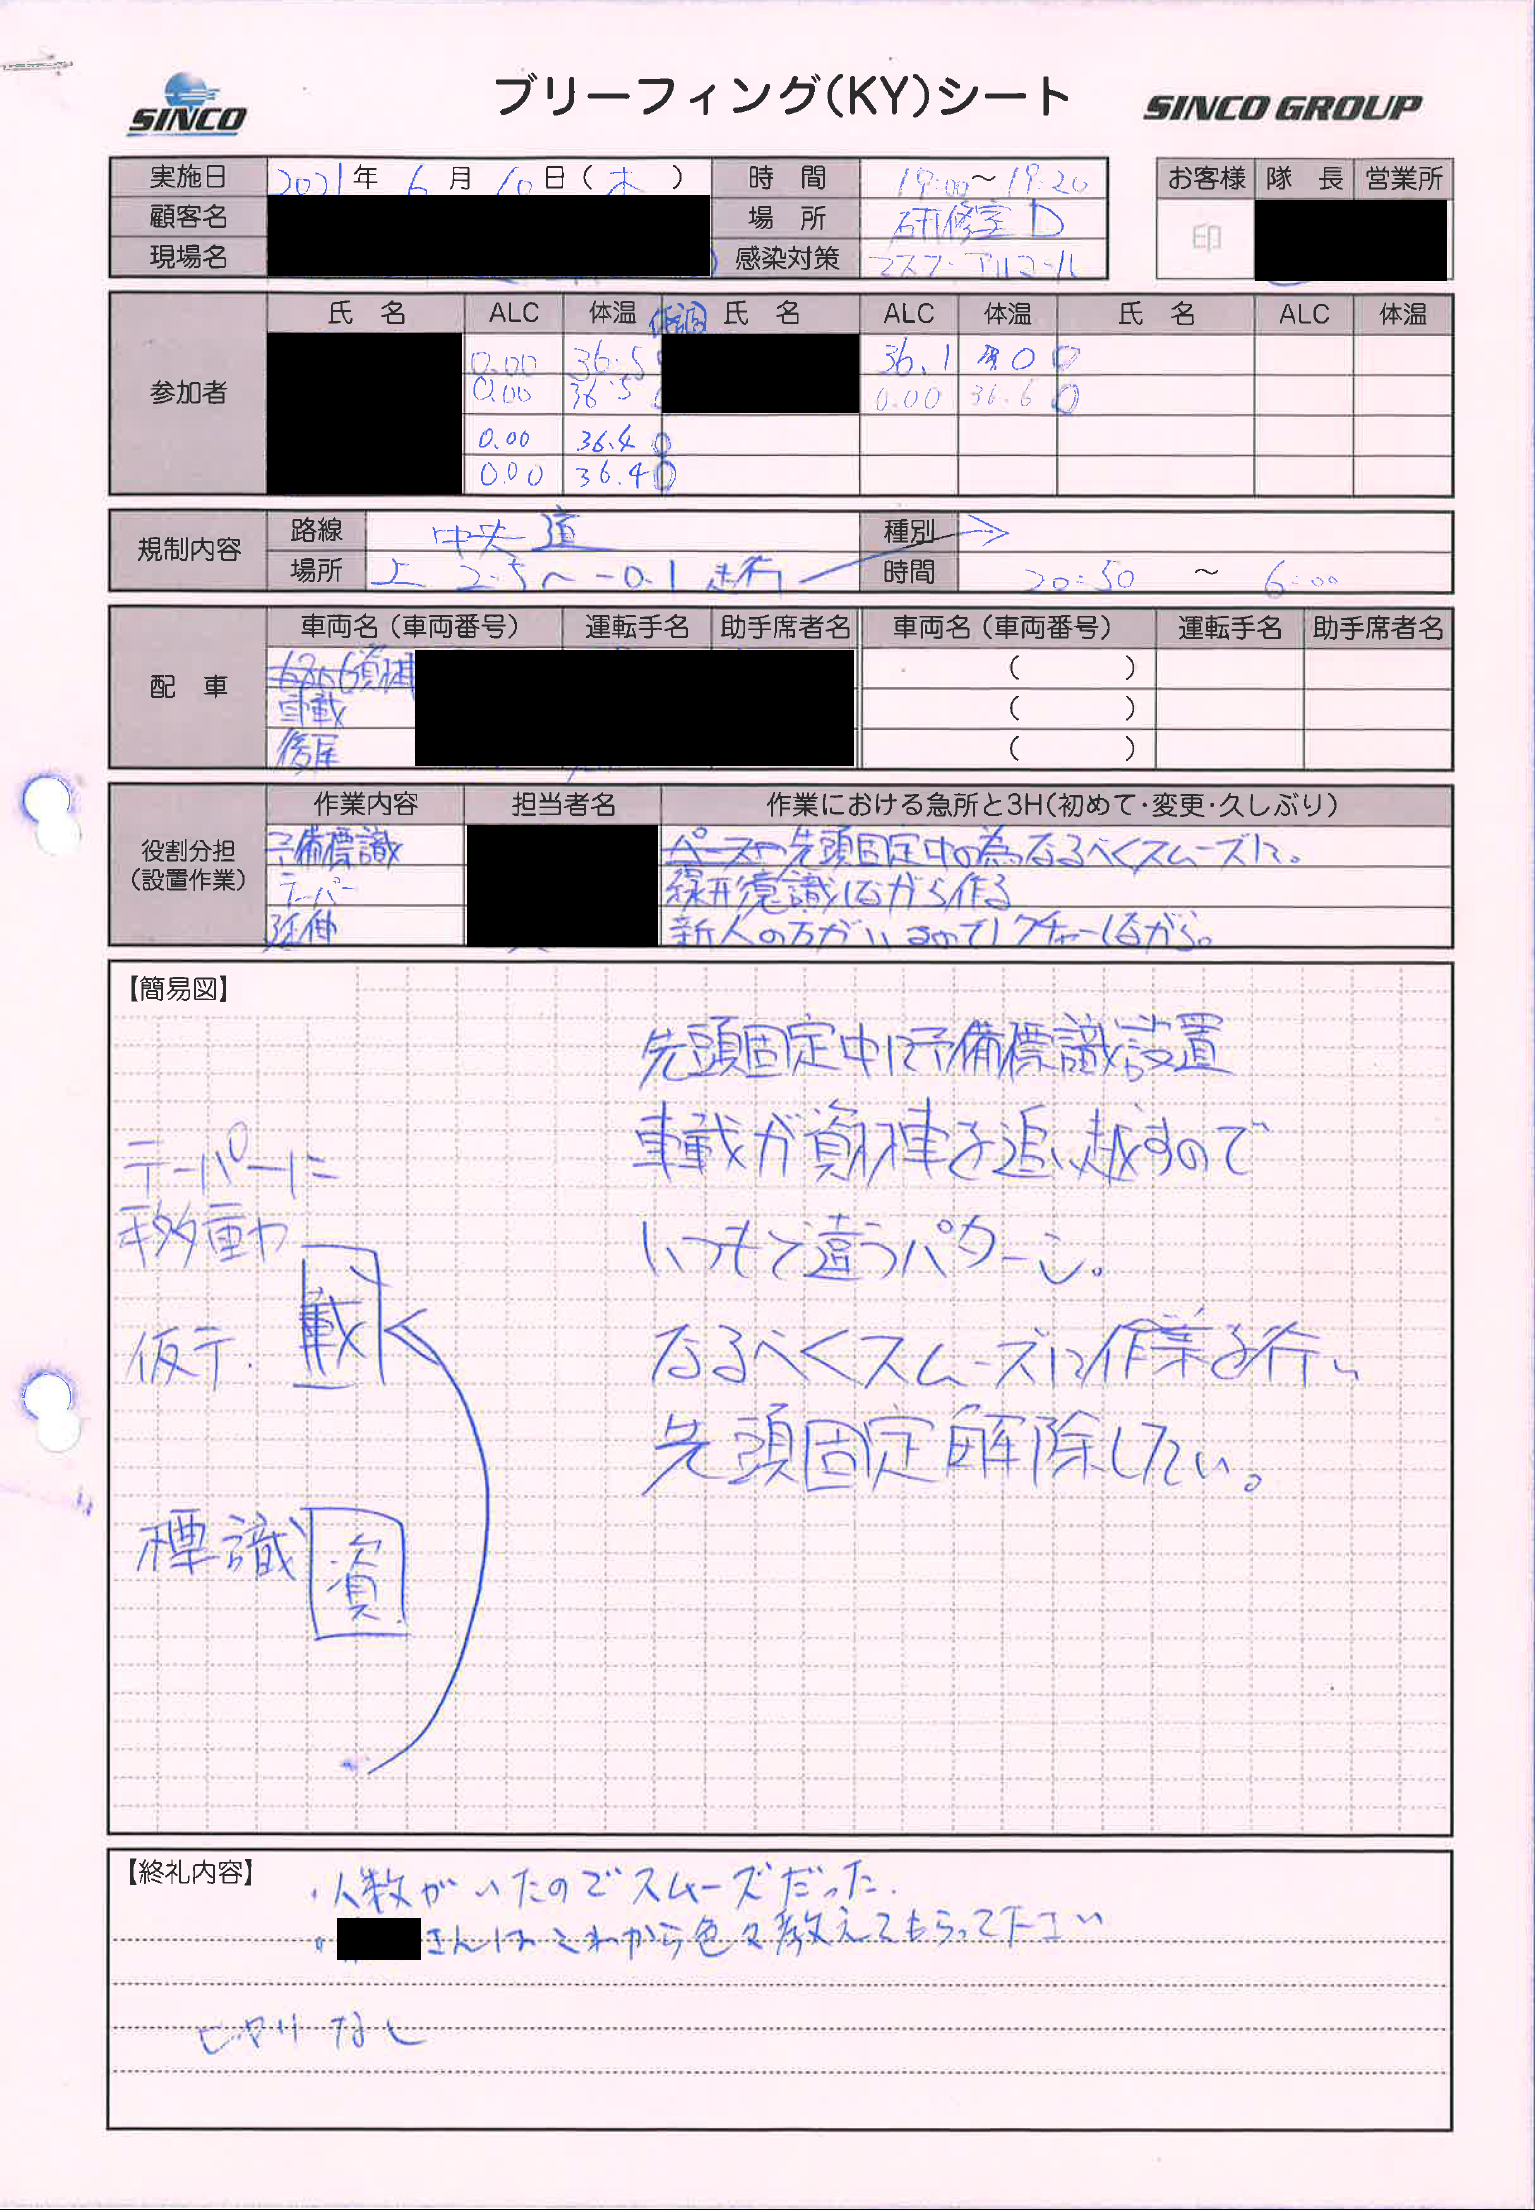 SINCO
ブリーフィング(KY)シート
SINCO GROUP
実施日 2021年 6月 10日(木) 時 間 19:00～19:20
お客様 隊 長 営業所
顧客名 場 所 研修室D
印
現場名 感染対策 マスク・アルコール
参加者
氏 名 ALC 体温 体調 氏 名 ALC 体温 氏 名 ALC 体温
0.00 36.5 36.1 0 0
0.00 36.5 0.00 36.6 0
0.00 36.4 0
0.00 36.4 0
規制内容
路線 中央道 種別
場所 上 2.5～-0.1 走行 時間 20:50 ～ 6:00
配 車
車両名(車両番号) 運転手名 助手席者名 車両名(車両番号) 運転手名 助手席者名
資機車 ( )
車載 ( )
後尾 ( )
役割分担
(設置作業)
作業内容 担当者名 作業における急所と3H(初めて・変更・久しぶり)
予備標識 先頭固定中の為、なるべくスムーズに。
テーパー 線形意識しながら作る
延伸 新人の方がいるのでレクチャーしながら。
【簡易図】
先頭固定中に予備標識設置
車載が資機車を追い越すので
いつもと違うパターン。
なるべくスムーズに作業を行い
先頭固定解除したい。
テーパーに
移動
仮テ.
載
標識
資
【終礼内容】
・人数がいたのでスムーズだった.
・さんはこれから色々教えてもらって下さい
ヒヤリなし